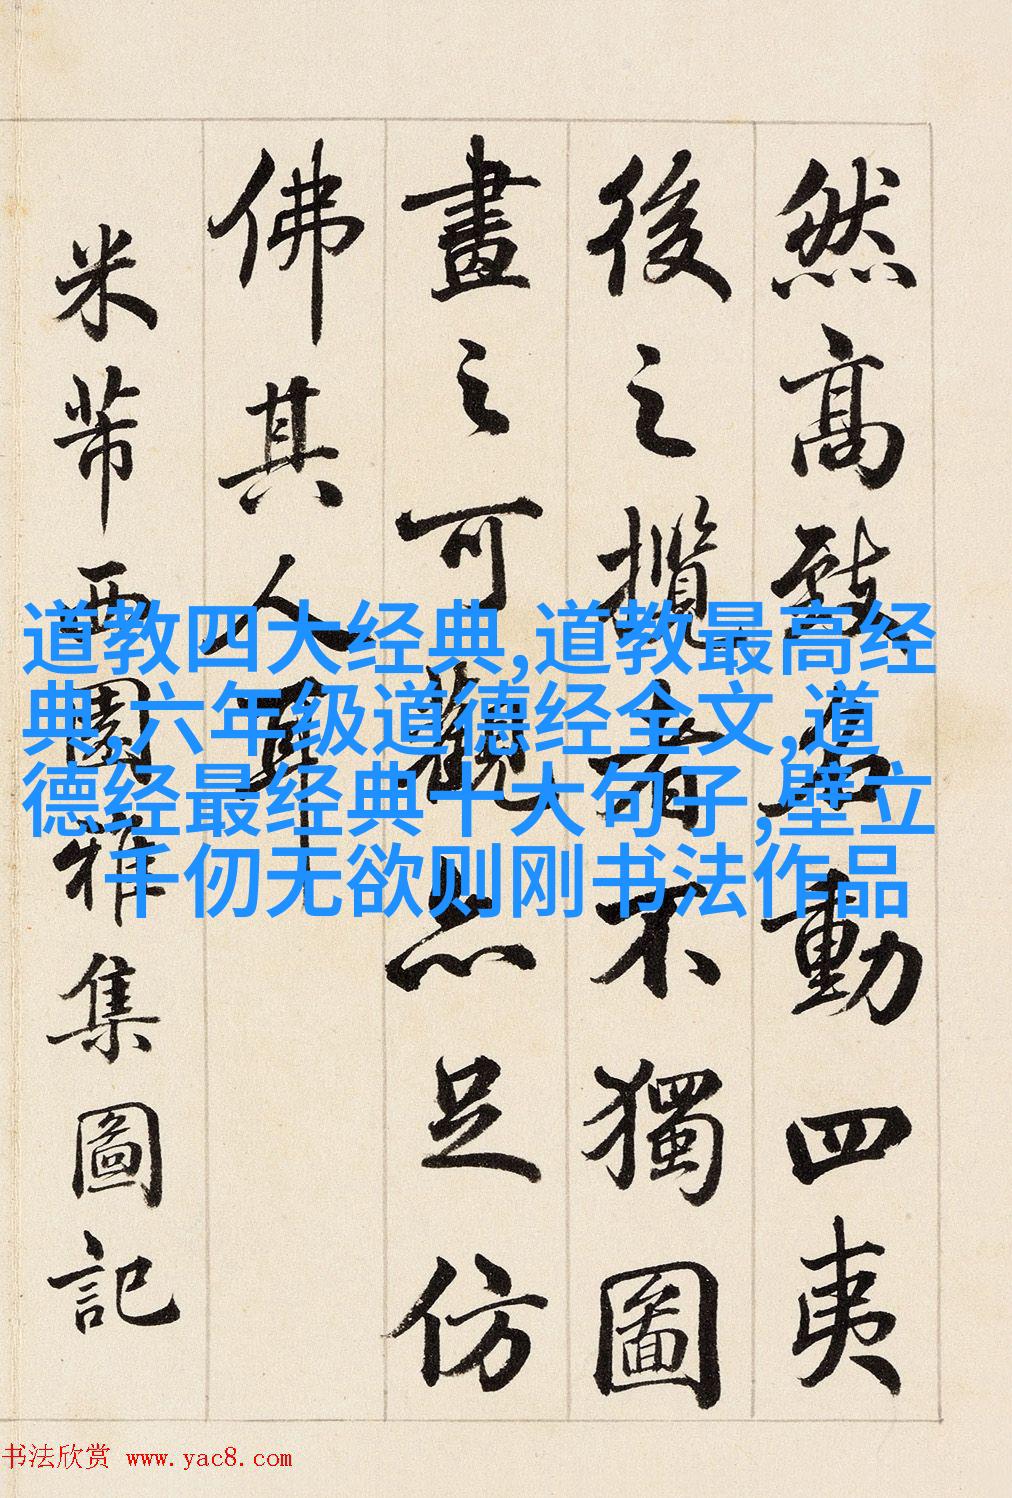 然高致名動四夷
後之攬者不獨圖
畫之可觀亦足仿
佛其人耳
米芾西園雅集圖記
道教四大经典,道教最高经
典,六年级道德经全文,道
德经最经典十大句子,壁立
千仞无欲则刚书法作品
书法欣赏 www.yac8.com